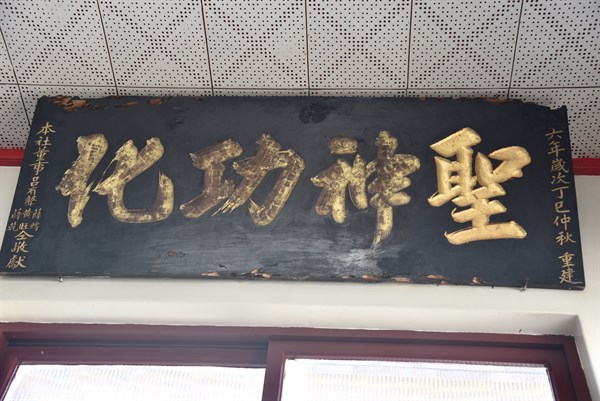 六年歲次丁巳仲秋 重建
聖神功化
本社董事呂
黃旺
仝敬獻